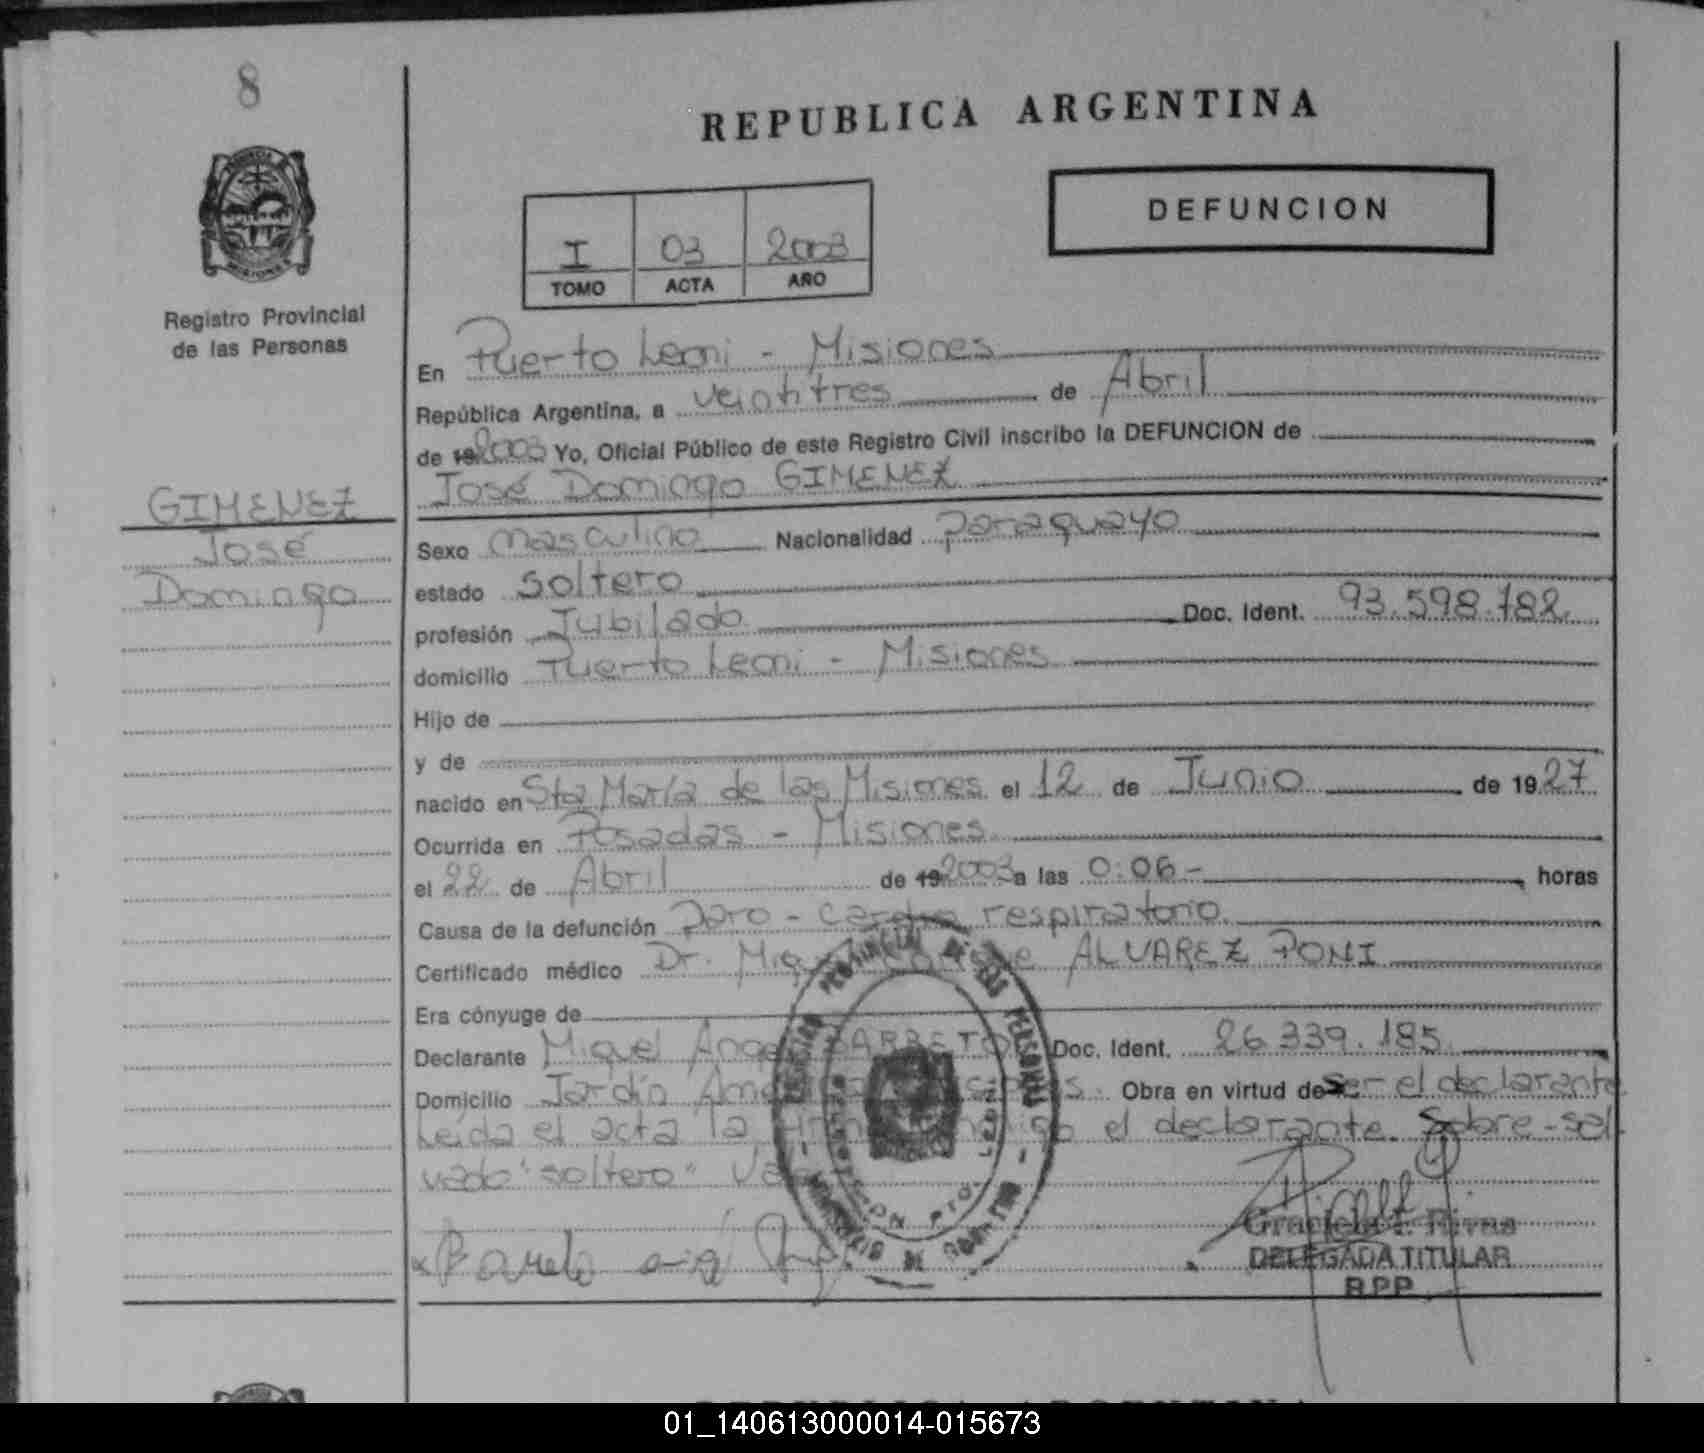 8
REPUBLICA ARGENTINA
DEFUNCION
I 03 2003
TOMO ACTA AÑO
Registro Provincial
de las Personas
En Puerto Leoni - Misiones
República Argentina, a veintitres de Abril
de 19 2003 Yo, Oficial Público de este Registro Civil inscribo la DEFUNCION de
José Domingo GIMENEZ
GIMENEZ
José
Domingo
Sexo masculino Nacionalidad paraguayo
estado soltero
profesión Jubilado Doc. Ident. 93.598.782
domicilio Puerto Leoni - Misiones
Hijo de
y de
nacido en Sta María de las Misiones el 12 de Junio de 1927
Ocurrida en Posadas - Misiones
el 22 de Abril de 19 2003 a las 0:06 - horas
Causa de la defunción paro - cardio respiratorio
Certificado médico Dr. ALVAREZ PONI
Era cónyuge de
Declarante Miguel Angel BARRETO Doc. Ident. 26.339.185
Domicilio Jardín Obra en virtud de ser el declarante
Leída el acta la el declarante. Sobre-sal
vado "soltero"
PROVINCIAL DE LAS PERSONAS
DELEGADA TITULAR
R.P.P.
REPUBLICA ARGENTINA
01_140613000014-015673